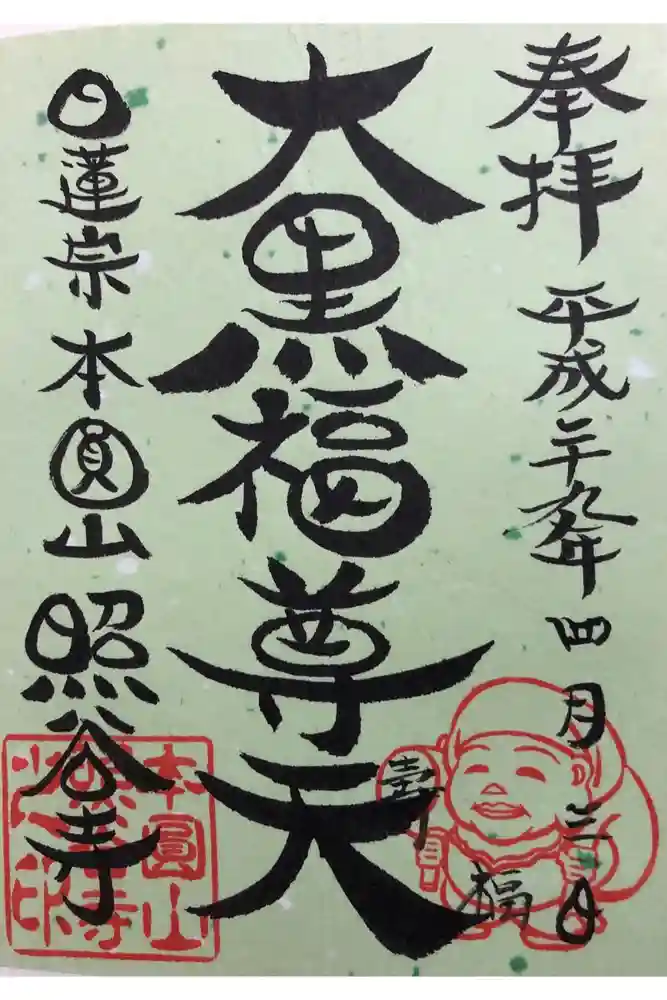 奉拝 平成二十九年四月三日
大黒福尊天
壽
福
日蓮宗 本圓山 照谷寺
本圓山